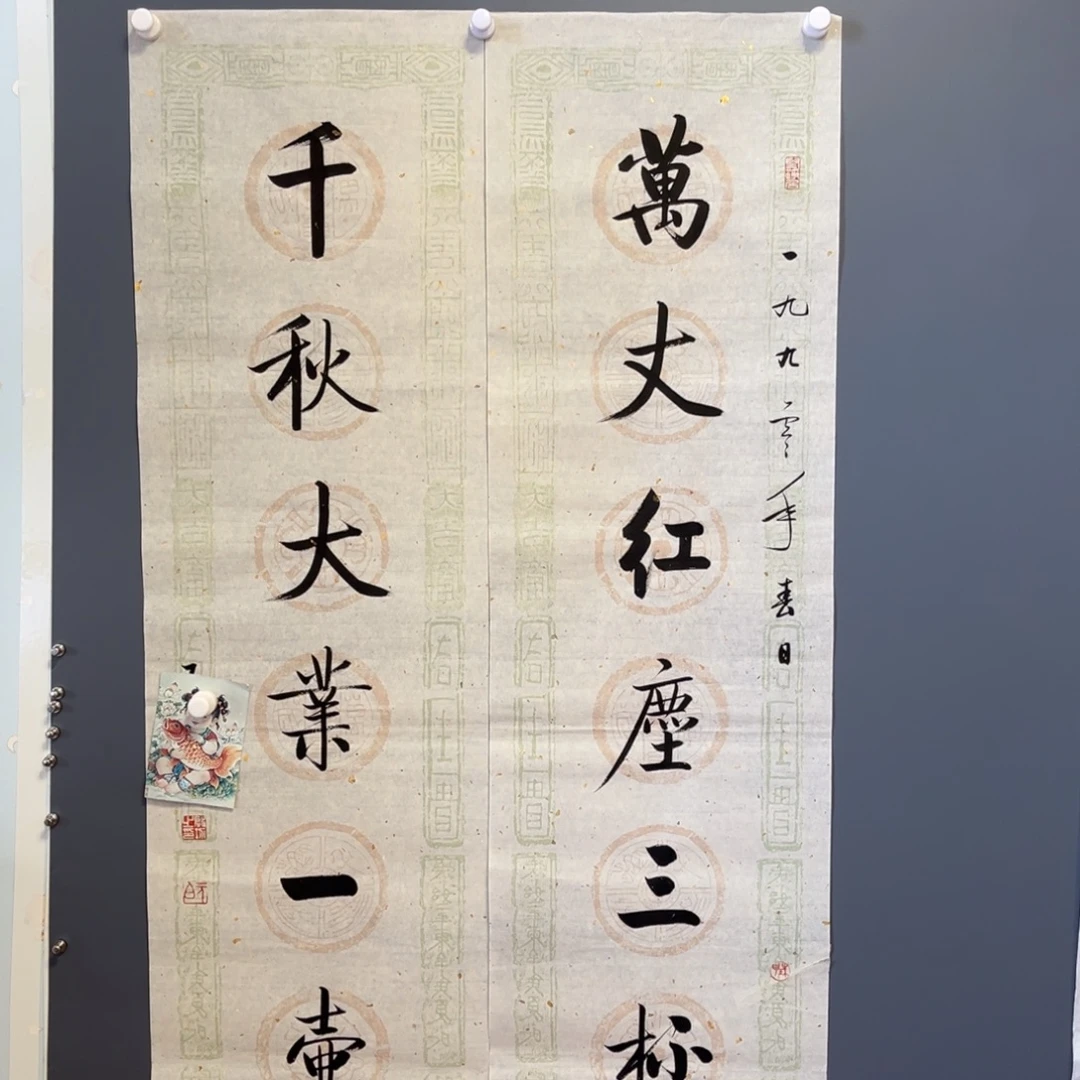 一九九零年春日
萬丈红塵三杯
千秋大業一壷